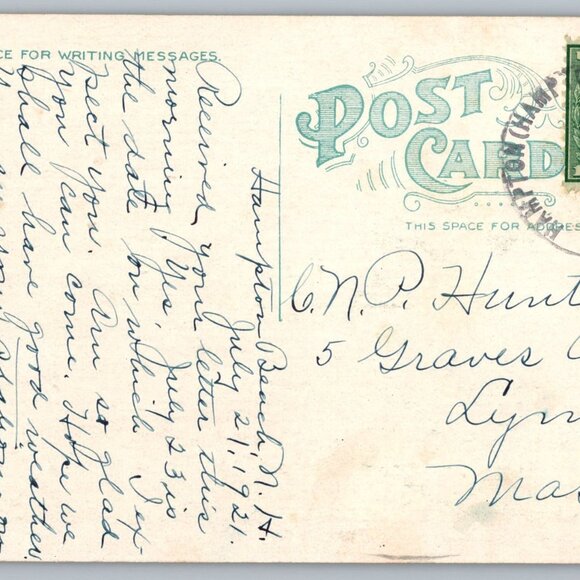 CE FOR WRITING MESSAGES.
POST
CARD
THIS SPACE FOR ADDRES
HAMPTON (HAMP
Hampton Beach, N. H.
July 21, 1921.
Received your letter this
morning. Yes, July 23, is
the date on which I ex-
pect you. Am so glad
you can come. Hope we
shall have good weather.
C. N. P. Hunt
5 Graves
Lyn
Mas